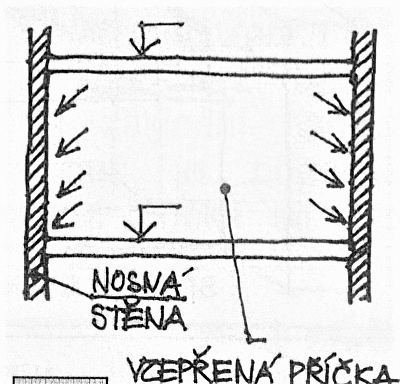 NOSNÁ
STĚNA
VZEPŘENÁ PŘÍČKA